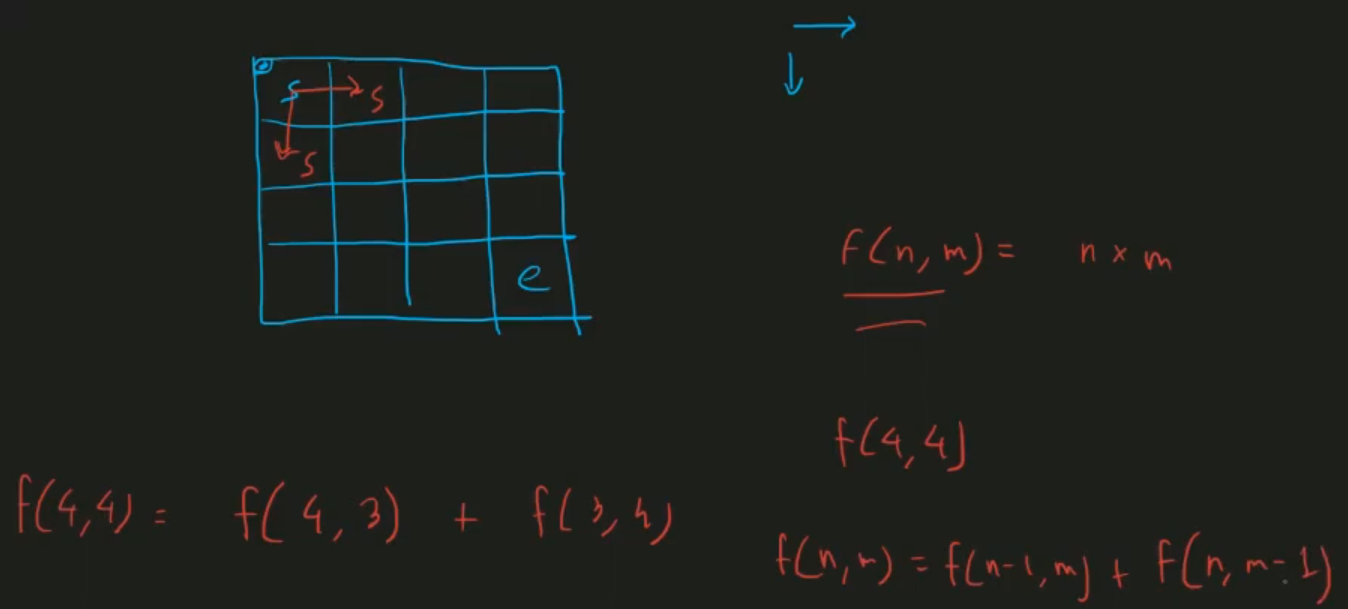 S S
S
e
f(n, m) = n × m
f(4, 4)
f(4,4) = f(4, 3) + f(3, 4)
f(n, m) = f(n-1, m) + f(n, m-1)